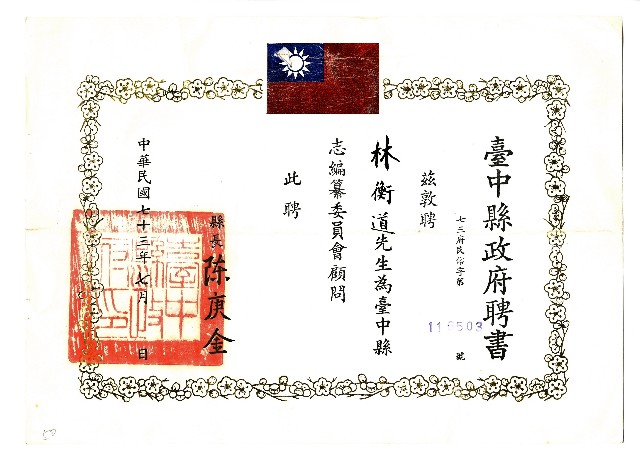 臺中縣政府聘書
七三府民治字第 號
茲敦聘
林衡道先生為臺中縣
志編纂委員會顧問
此聘
縣長 陳庚金
中華民國七十三年七月 日